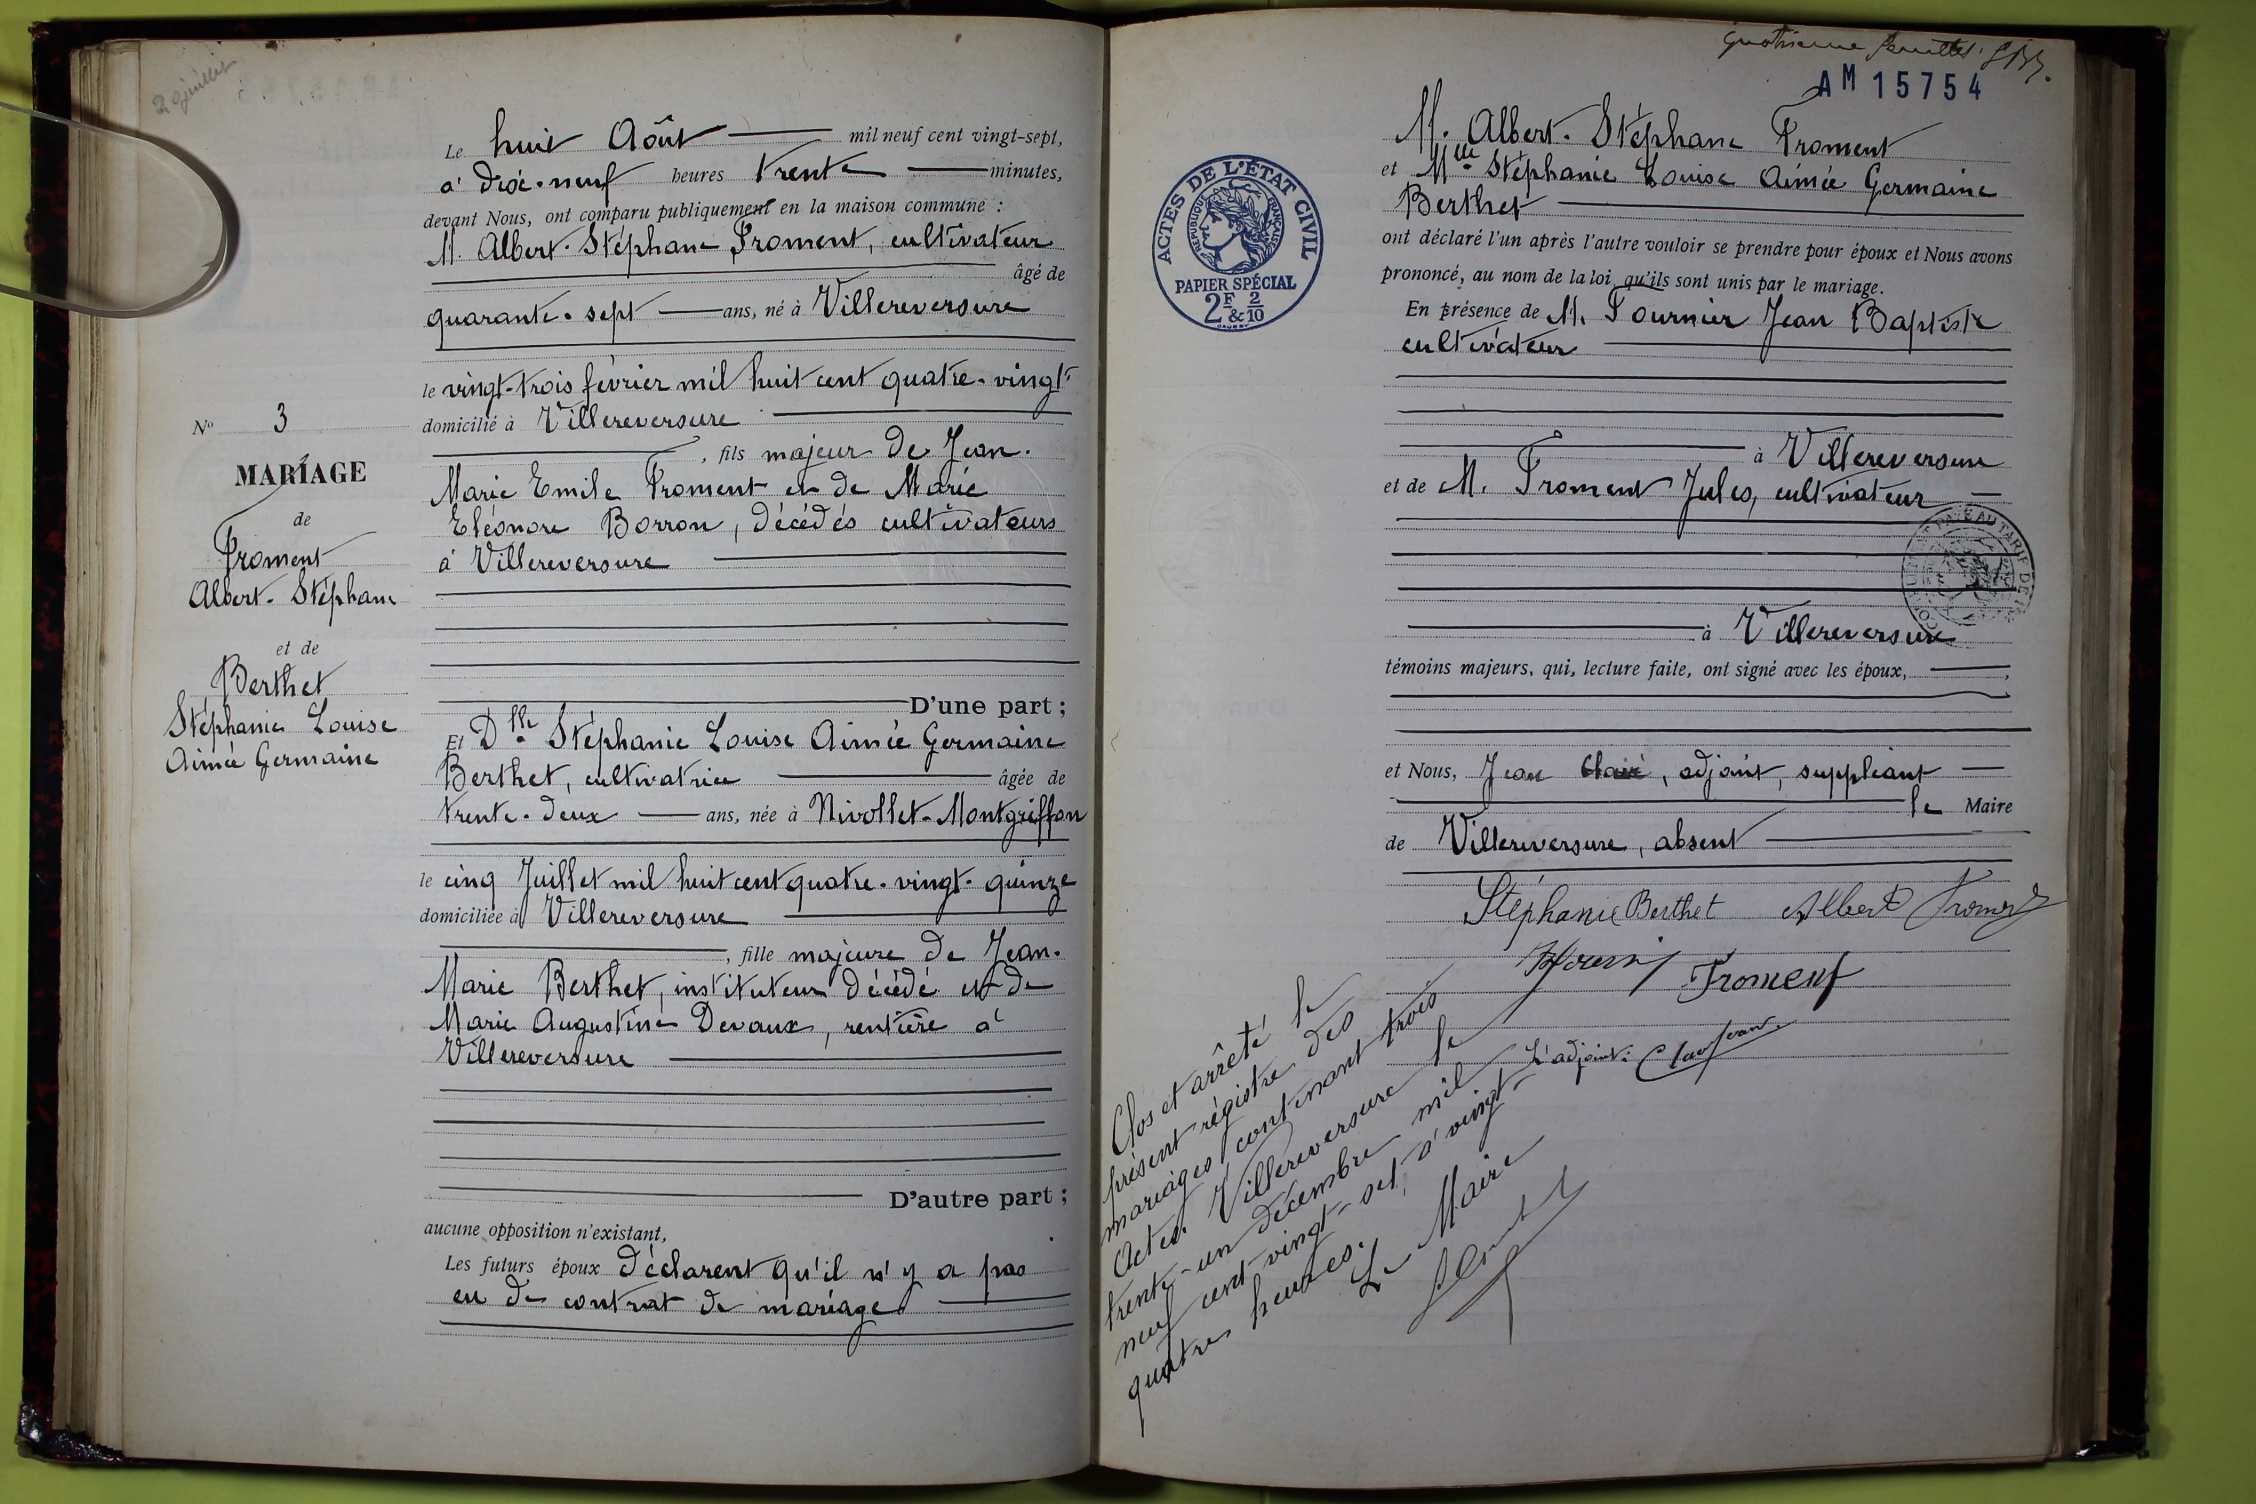 20 juillet
Le huit Août mil neuf cent vingt-sept,
à dix-neuf heures trente minutes,
devant Nous, ont comparu publiquement en la maison commune :
M. Albert-Stéphane Froment, cultivateur
âgé de
quarante-sept ans, né à Villereversure
le vingt-trois février mil huit cent quatre-vingt
domicilié à Villereversure
, fils majeur de Jean-
Marie Emile Froment et de Marie
Eléonore Borron, décédés cultivateurs
à Villereversure
D'une part ;
Et Dlle Stéphanie Louise Aimée Germaine
Berthet, cultivatrice âgée de
trente-deux ans, née à Nivollet-Montgriffon
le cinq Juillet mil huit cent quatre-vingt-quinze
domiciliée à Villereversure
, fille majeure de Jean-
Marie Berthet, instituteur décédé et de
Marie Augustine Devaux, rentière à
Villereversure
D'autre part ;
aucune opposition n'existant,
Les futurs époux déclarent qu'il n'y a pas
eu de contrat de mariage
No 3
MARIAGE
de
Froment
Albert-Stéphane
et de
Berthet
Stéphanie Louise
Aimée Germaine
AM 15754
M. Albert-Stéphane Froment
et Mlle Stéphanie Louise Aimée Germaine
Berthet
ont déclaré l'un après l'autre vouloir se prendre pour époux et Nous avons
prononcé, au nom de la loi, qu'ils sont unis par le mariage.
En présence de M. Fournier Jean Baptiste
cultivateur
à Villereversure
et de M. Froment Jules, cultivateur
à Villereversure
témoins majeurs, qui, lecture faite, ont signé avec les époux,
et Nous, Jean , adjoint, suppléant
le Maire
de Villereversure, absent
Stéphanie Berthet Albert Froment
Froment
L'adjoint: Jean
ACTES DE L'ÉTAT CIVIL
RÉPUBLIQUE FRANÇAISE
PAPIER SPÉCIAL
2F & 2/10
Clos et arrêté le
présent régistre des
mariages contenant trois
Actes. Villereversure le
trente-un décembre mil
neuf cent vingt-set, à vingt-
quatre heures.
Le Maire